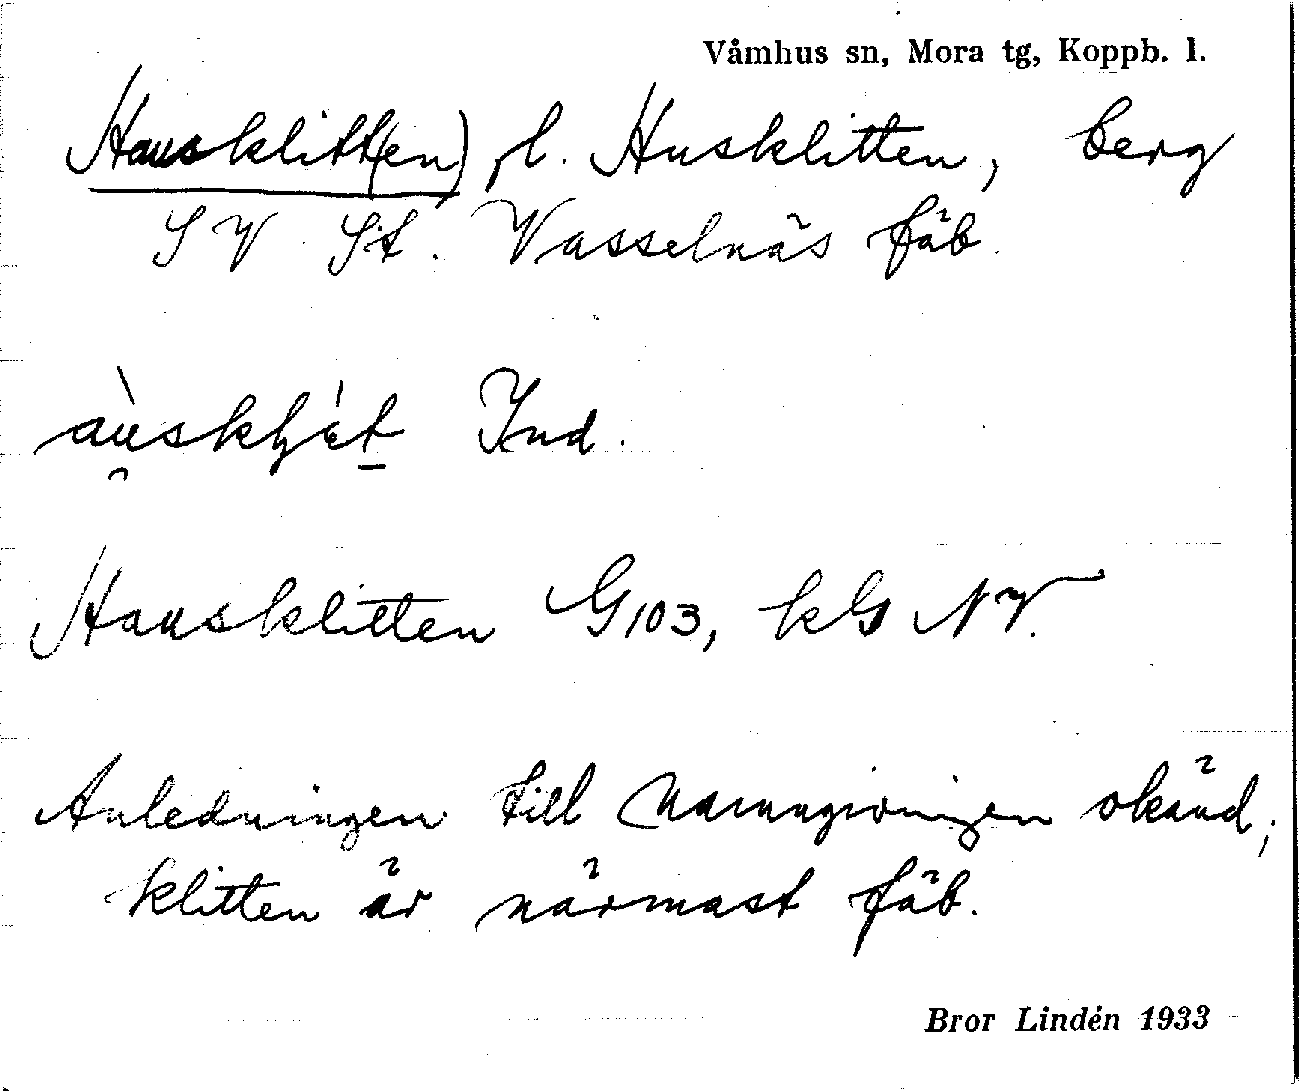 Våmhus sn, Mora tg, Koppb. l.
Hausklitt(en), l. Husklitten, berg
SV St. Vasselnäs fäb.
Ind.
Hausklitten G103, kG NV.
Anledningen till namngivningen okänd;
klitten är närmast fäb.
Bror Lindén 1933